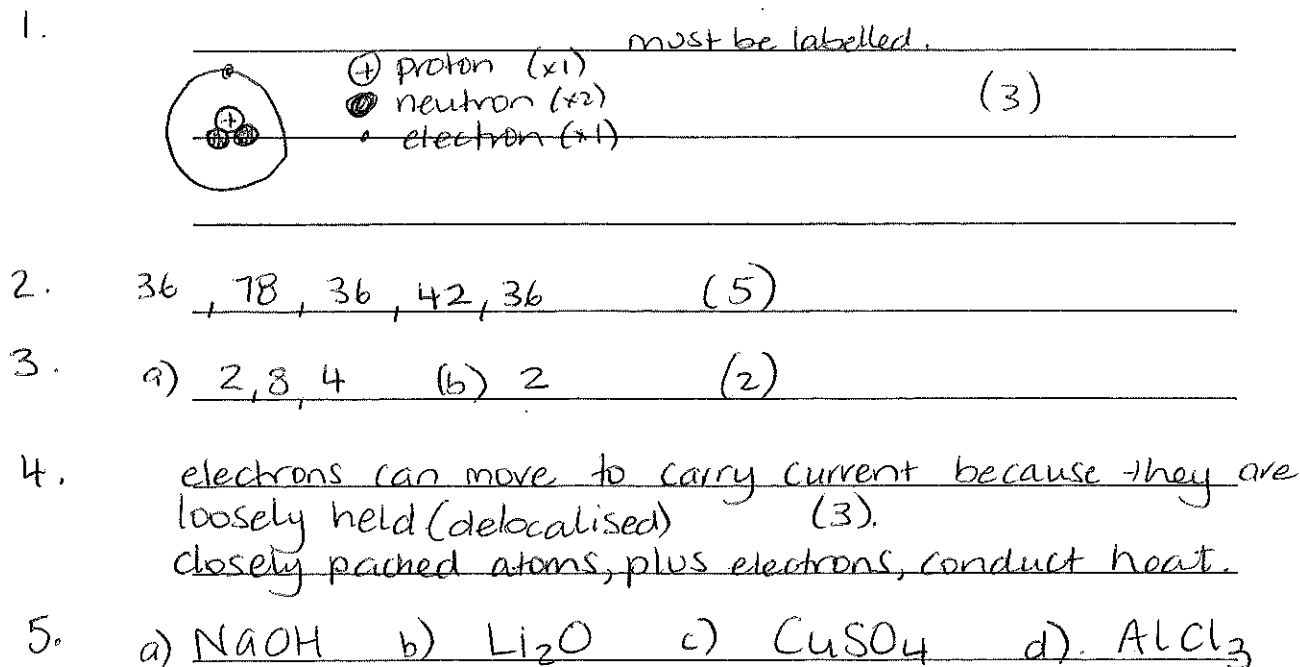 1.
must be labelled.
+ proton (x1)
neutron (x2)
(3)
electron (x1)
+
2. 36, 78, 36, 42, 36 (5)
3. a) 2, 8, 4 (b) 2 (2)
4. electrons can move to carry current because they are
loosely held (delocalised) (3).
closely packed atoms, plus electrons, conduct heat.
5. a) NaOH b) Li₂O c) CuSO₄ d). AlCl₃